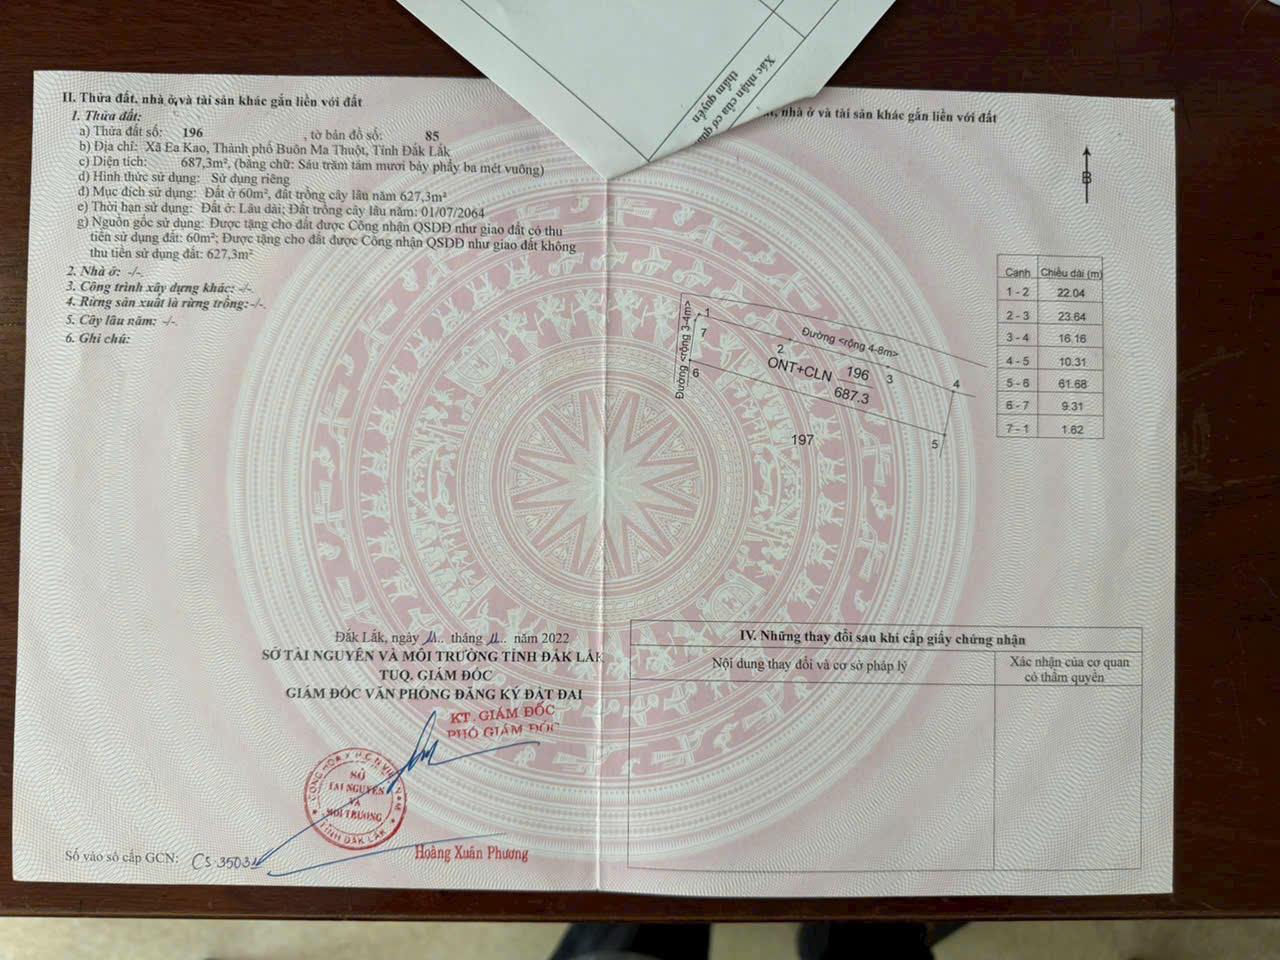 II. Thửa đất, nhà ở và tài sản khác gắn liền với đất
1. Thửa đất:
a) Thửa đất số: 196 , tờ bản đồ số: 85
b) Địa chỉ: Xã Ea Kao, Thành phố Buôn Ma Thuột, Tỉnh Đắk Lắk
c) Diện tích: 687,3m², (bằng chữ: Sáu trăm tám mươi bảy phẩy ba mét vuông)
d) Hình thức sử dụng: Sử dụng riêng
đ) Mục đích sử dụng: Đất ở 60m², đất trồng cây lâu năm 627,3m²
e) Thời hạn sử dụng: Đất ở: Lâu dài; Đất trồng cây lâu năm: 01/07/2064
g) Nguồn gốc sử dụng: Được tặng cho đất được Công nhận QSDĐ như giao đất có thu
tiền sử dụng đất: 60m²; Được tặng cho đất được Công nhận QSDĐ như giao đất không
thu tiền sử dụng đất: 627,3m²
2. Nhà ở: -/-
3. Công trình xây dựng khác: -/-
4. Rừng sản xuất là rừng trồng: -/-
5. Cây lâu năm: -/-
6. Ghi chú:
Đắk Lắk, ngày 11 tháng 11 năm 2022
SỞ TÀI NGUYÊN VÀ MÔI TRƯỜNG TỈNH ĐẮK LẮK
TUQ. GIÁM ĐỐC
GIÁM ĐỐC VĂN PHÒNG ĐĂNG KÝ ĐẤT ĐAI
KT. GIÁM ĐỐC
PHÓ GIÁM ĐỐC
SỞ
TÀI NGUYÊN
VÀ
MÔI TRƯỜNG
TỈNH ĐẮK LẮK
Hoàng Xuân Phương
Số vào sổ cấp GCN:
Xác nhận của cơ quan
thẩm quyền
nhà ở và tài sản khác gắn liền với đất
B
Cạnh Chiều dài (m)
1 - 2 22.04
2 - 3 23.64
3 - 4 16.16
4 - 5 10.31
5 - 6 61.68
6 - 7 9.31
7 - 1 1.62
Đường <rộng 3-4m>
Đường <rộng 4-6m>
1
7
2
6
3
4
5
ONT+CLN 196
687.3
197
IV. Những thay đổi sau khi cấp giấy chứng nhận
Nội dung thay đổi và cơ sở pháp lý
Xác nhận của cơ quan
có thẩm quyền